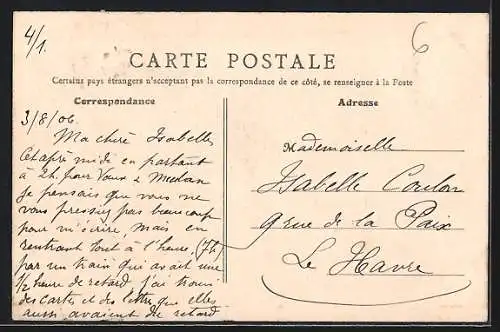 4/1.
6
CARTE POSTALE
Certains pays étrangers n'acceptant pas la correspondance de ce côté, se renseigner à la Poste
Correspondance
3/8/06
Ma chère Isabelle,
Cet après midi en partant
à 2h. pour Vaux & Meulan
je pensais que vous ne
vous pressiez pas beaucoup
pour m'écrire, mais en
rentrant tout à l'heure, (7h)
par un train qui avait une
1/2 heure de retard j'ai trouvé
des cartes et des lettres que elles
aussi avaient de retard
Adresse
Mademoiselle
Isabelle Coulon
9 rue de la Paix
Le Havre